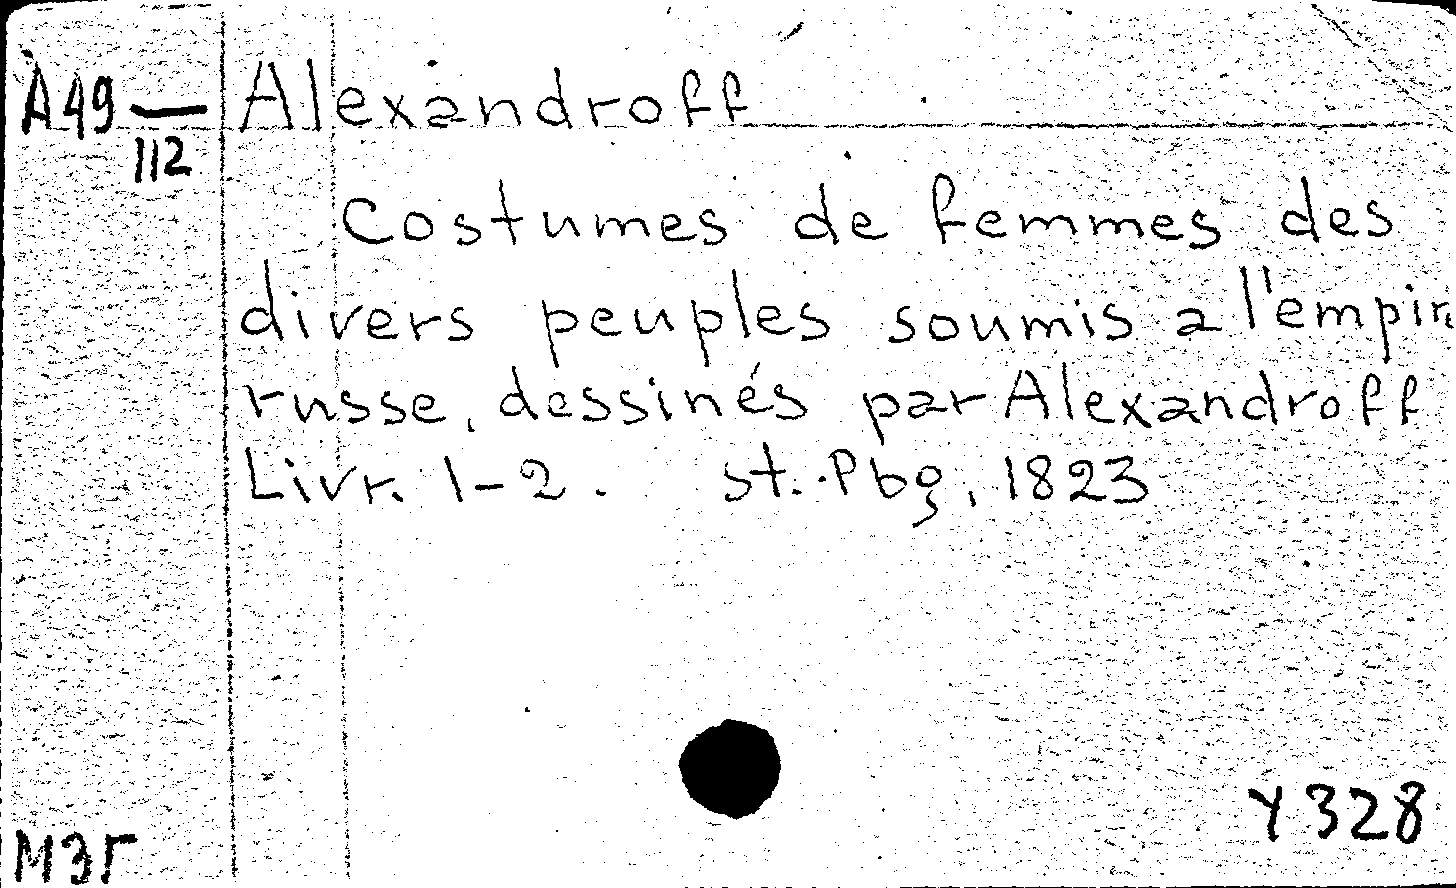 A49 — Alexandroff
112
Costumes de femmes des
divers peuples soumis a l'empire
russe, dessinés par Alexandroff
Livr. 1-2. St.-Pbg, 1823
У 328
МЗГ